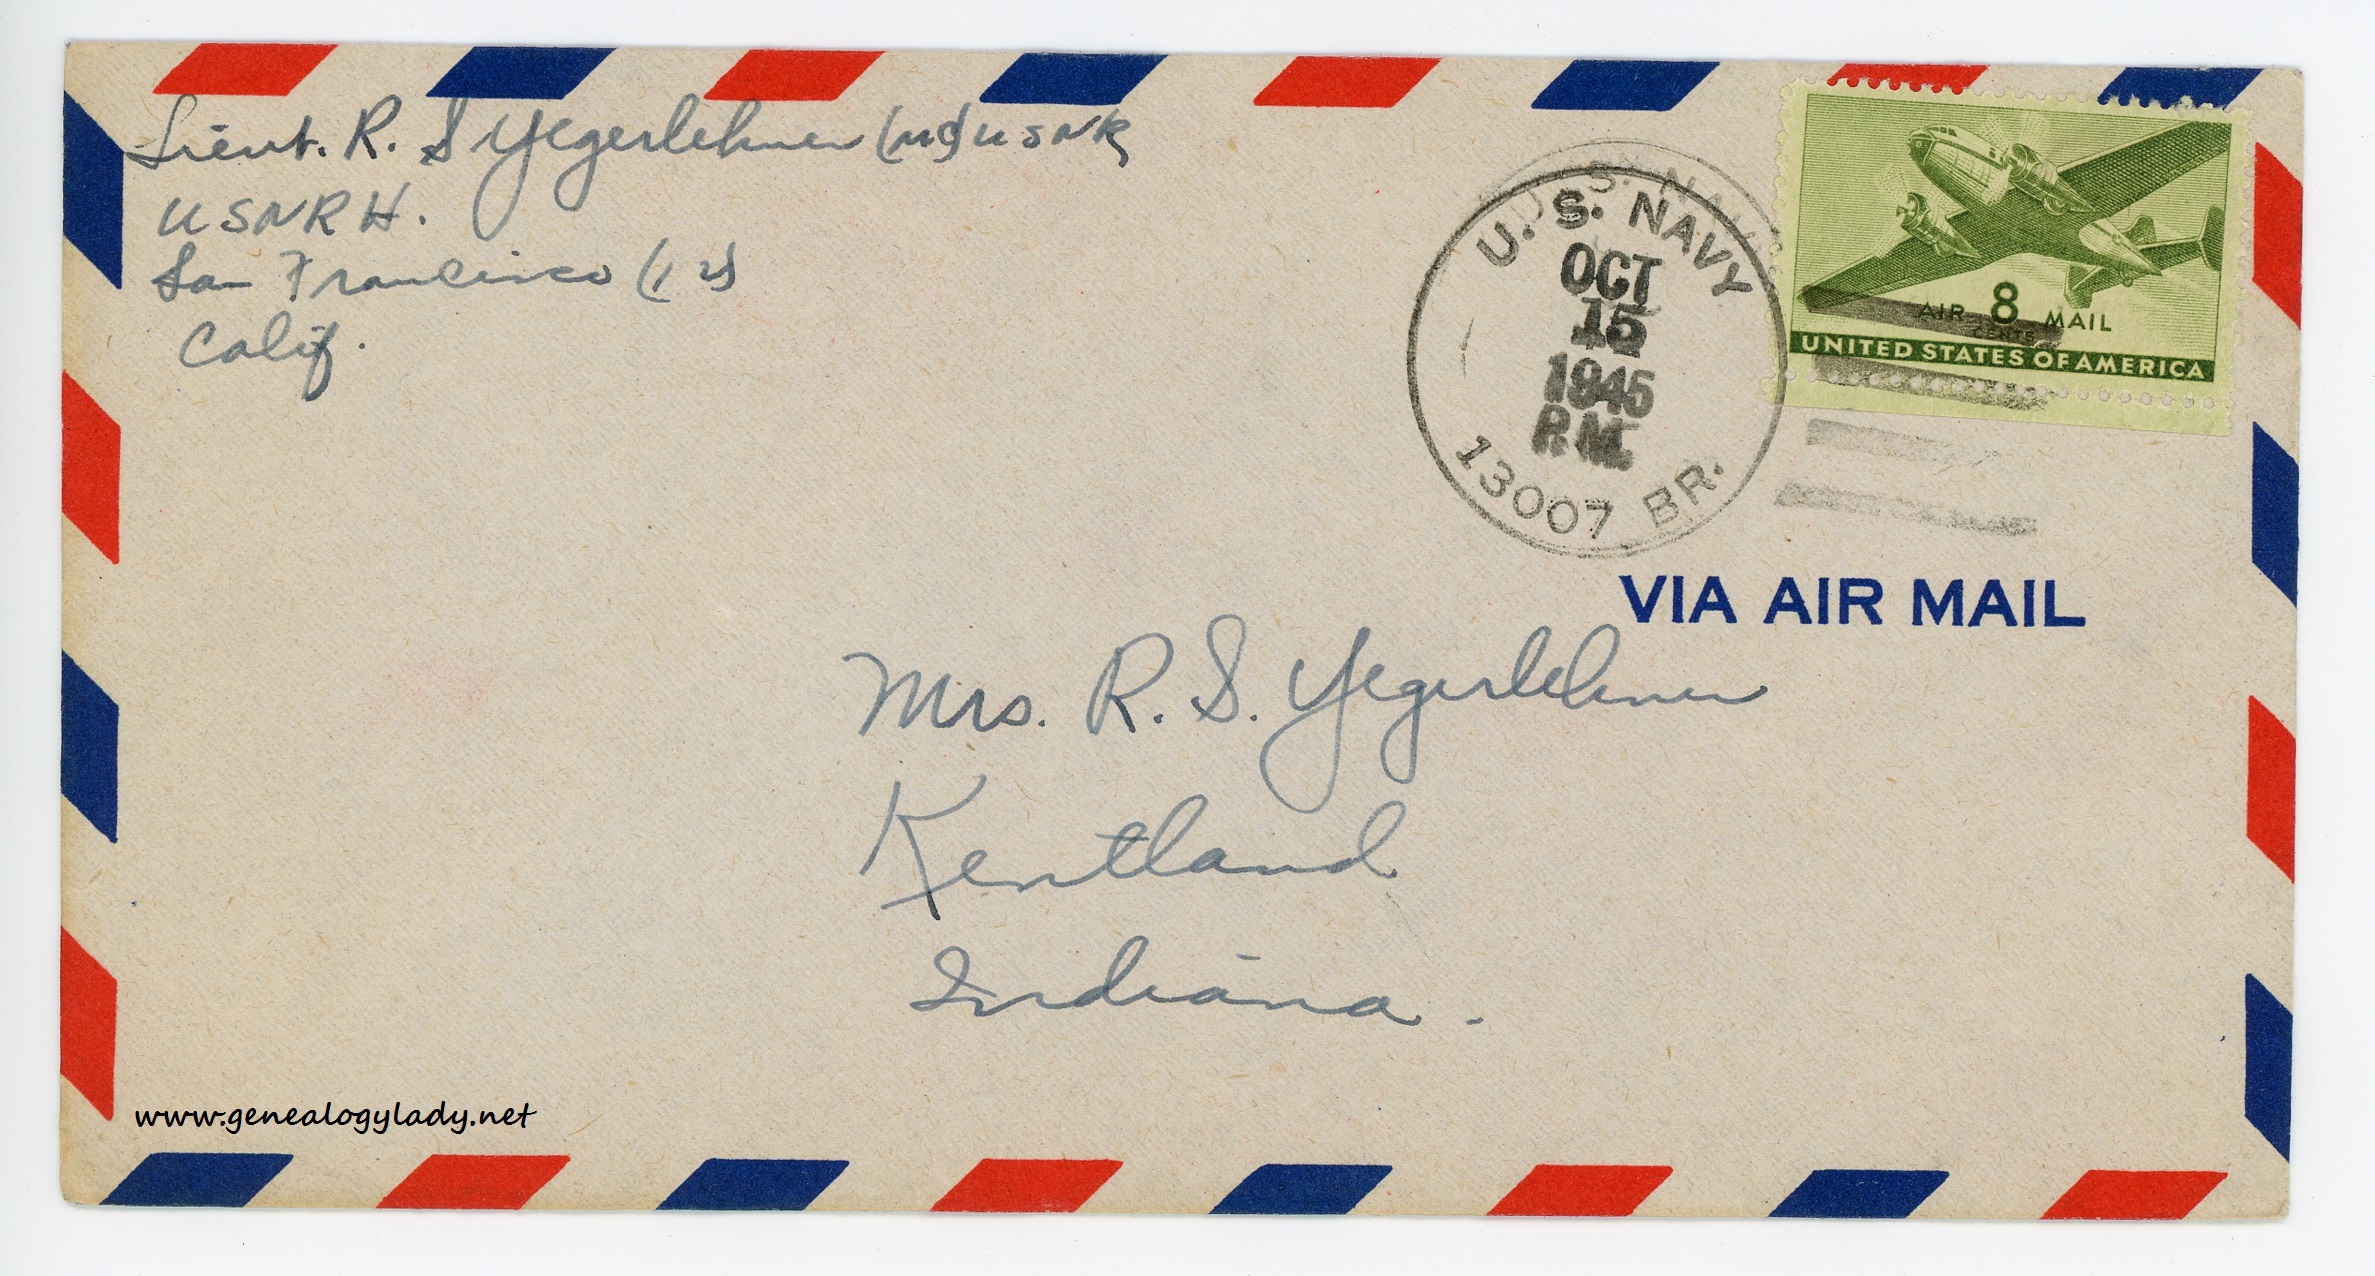 Lieut. R. S Yegerlehner (MC) USNR
USNRH.
San Francisco (12)
Calif.
U.S. NAVY
OCT
15
1945
P.M.
13007 BR.
AIR 8 MAIL
CENTS
UNITED STATES OF AMERICA
VIA AIR MAIL
Mrs. R. S. Yegerlehner
Kentland
Indiana.
www.genealogylady.net